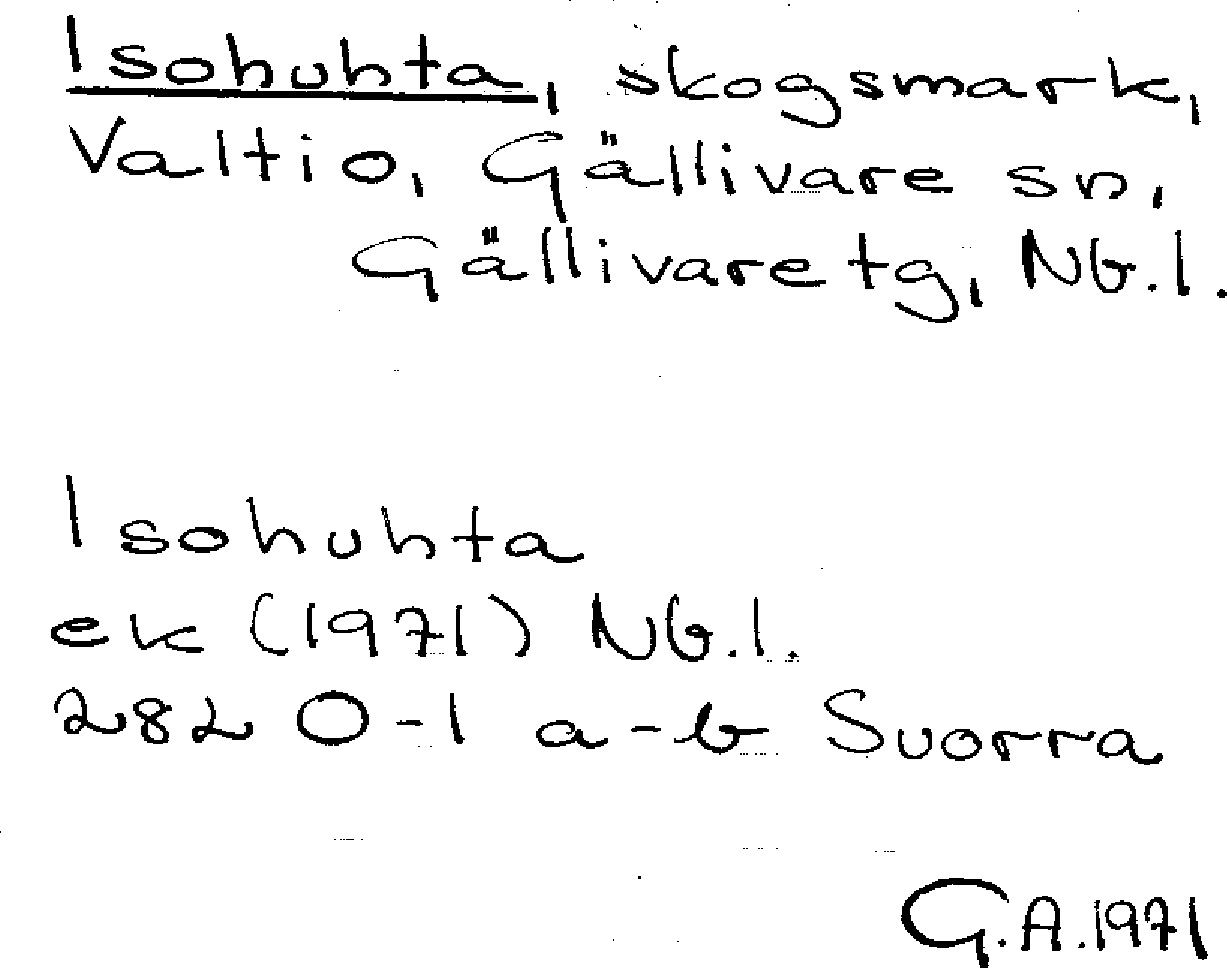 Isohuhta, skogsmark,
Valtio, Gällivare sn,
Gällivare tg, Nb.l.
Isohuhta
ek (1971) Nb.l.
282 0-1 a-b Suorra
G.A.1971